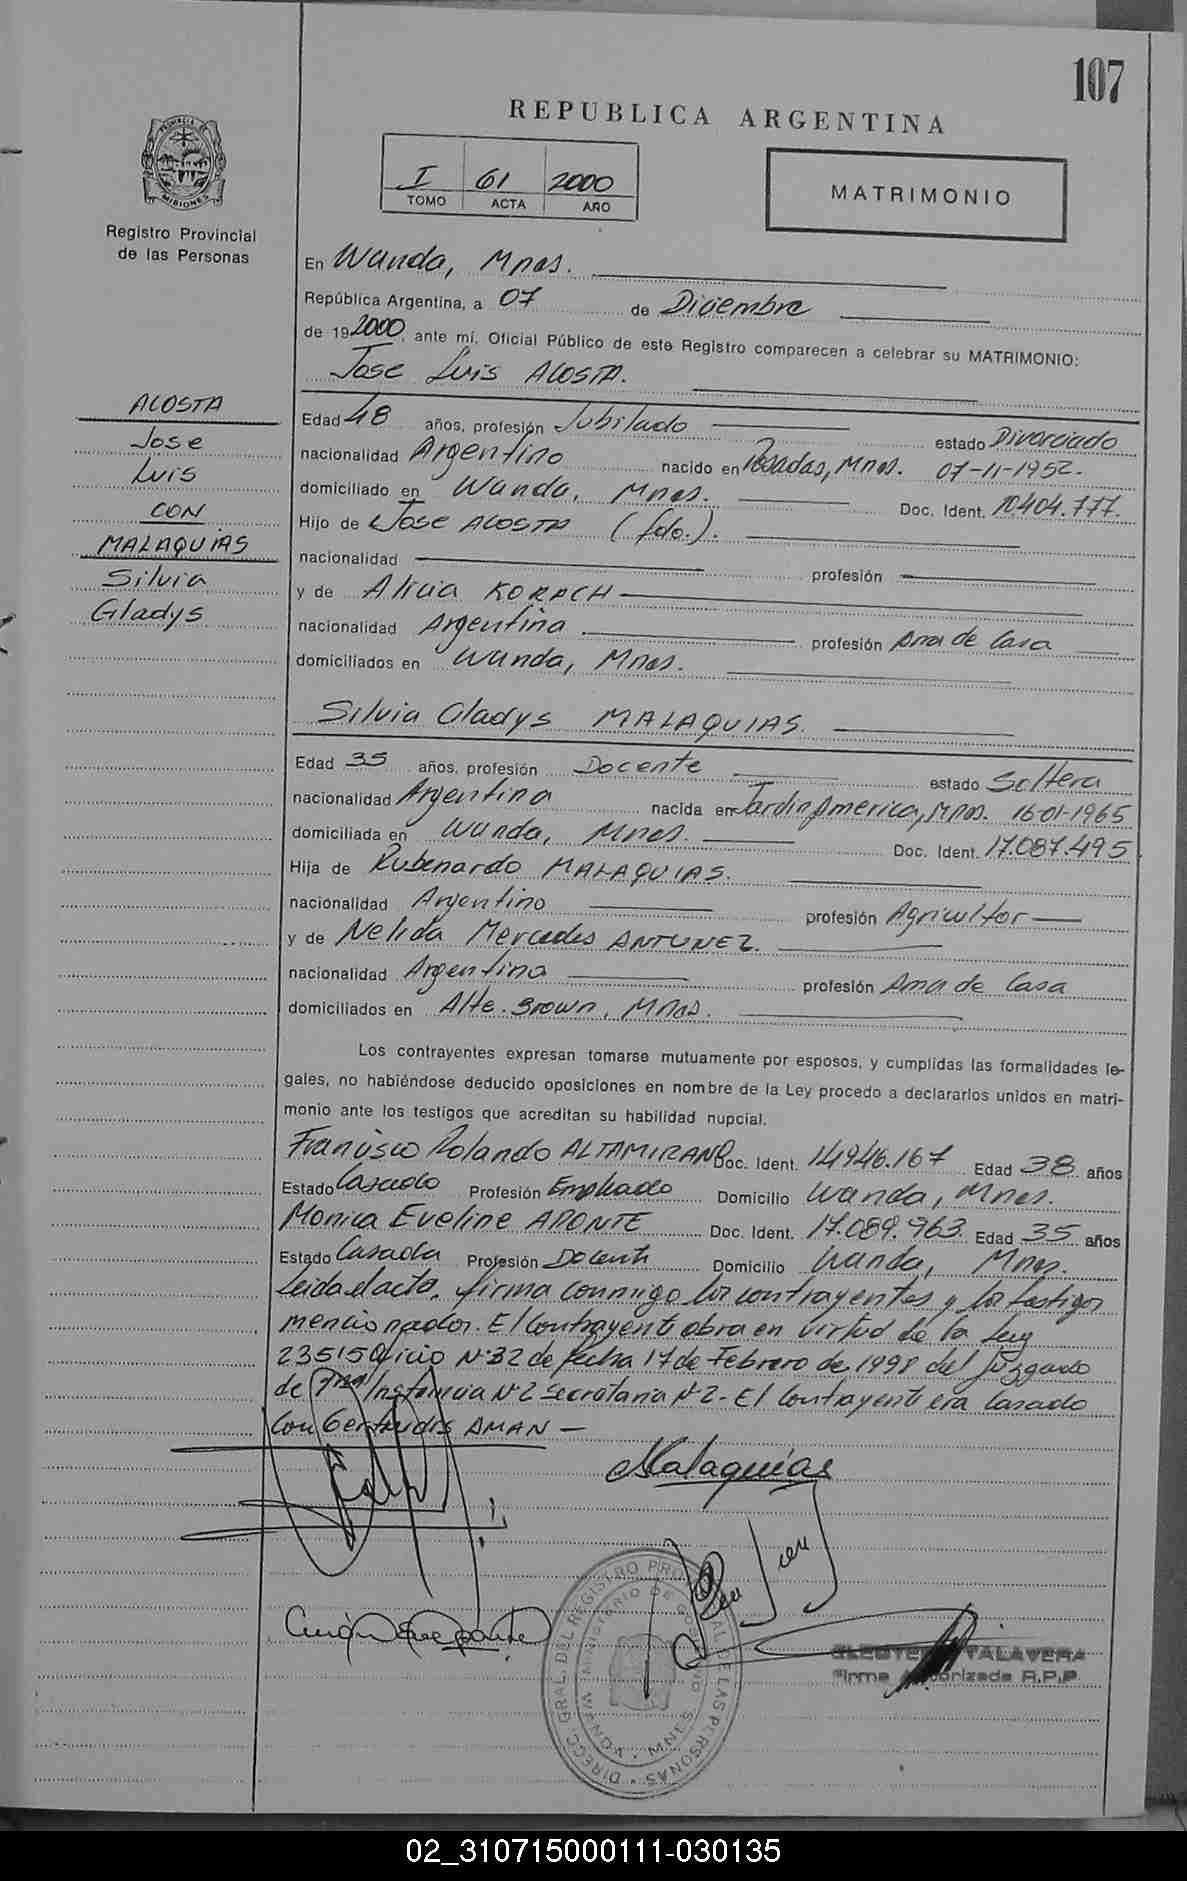 107
REPUBLICA ARGENTINA
I 61 2000
TOMO ACTA AÑO
MATRIMONIO
PROVINCIA DE MISIONES
Registro Provincial
de las Personas
En Wanda, Mnes.
República Argentina, a 07 de Diciembre
de 192000, ante mí, Oficial Público de este Registro comparecen a celebrar su MATRIMONIO:
Jose Luis ACOSTA.
ACOSTA
Jose
Luis
CON
MALAQUIAS
Silvia
Gladys
Edad 48 años, profesión Jubilado estado Divorciado
nacionalidad Argentino nacido en Posadas, Mnes. 07-11-1952.
domiciliado en Wanda, Mnes. Doc. Ident. 10.404.777.
Hijo de Jose ACOSTA (fdo.).
nacionalidad profesión
y de Alicia KORACH
nacionalidad Argentina profesión Ama de Casa
domiciliados en Wanda, Mnes.
Silvia Gladys MALAQUIAS.
Edad 35 años, profesión Docente estado Soltera
nacionalidad Argentina nacida en Jardin America, Mnes. 16-01-1965
domiciliada en Wanda, Mnes. Doc. Ident. 17.087.495
Hija de Rubenardo MALAQUIAS.
nacionalidad Argentino profesión Agricultor
y de Nelida Mercedes ANTUNEZ.
nacionalidad Argentina profesión Ama de Casa
domiciliados en Alte. Brown, Mnes.
Los contrayentes expresan tomarse mutuamente por esposos, y cumplidas las formalidades le-
gales, no habiéndose deducido oposiciones en nombre de la Ley procedo a declararlos unidos en matri-
monio ante los testigos que acreditan su habilidad nupcial.
Francisco Rolando ALTAMIRANO Doc. Ident. 14.946.167 Edad 38 años
Estado Casado Profesión Empleado Domicilio Wanda, Mnes.
Monica Eveline APONTE Doc. Ident. 17.089.963 Edad 35 años
Estado Casada Profesión Docente Domicilio Wanda, Mnes.
Leida el acta, firma conmigo los contrayentes y los testigos
mencionados. El contrayente obra en virtud de la Ley
23515 Oficio Nº32 de fecha 17 de Febrero de 1998 del Juzgado
de 1ra Instancia Nº2 Secretaria Nº2- El Contrayente era Casado
con Gertrudis AMAN -
Malaquias
DIRECC. GRAL. DEL REGISTRO PROVINCIAL DE LAS PERSONAS
MINISTERIO DE GOBIERNO
WANDA - MNES.
TALAVERA
Firma Autorizada R.P.P.
02_310715000111-030135